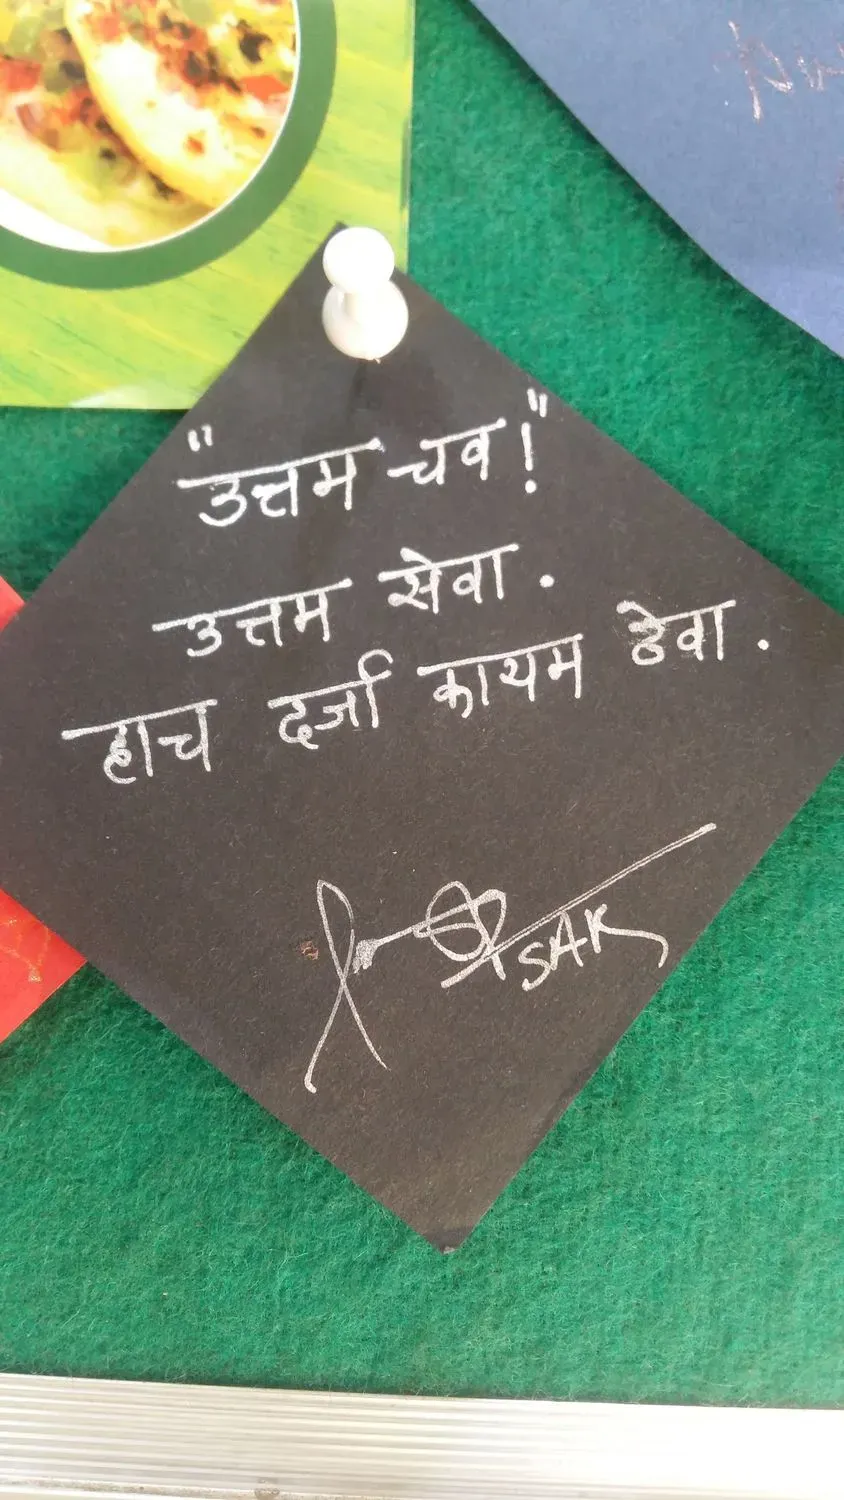 "उत्तम चव!"
उत्तम सेवा.
हाच दर्जा कायम ठेवा.
SAK